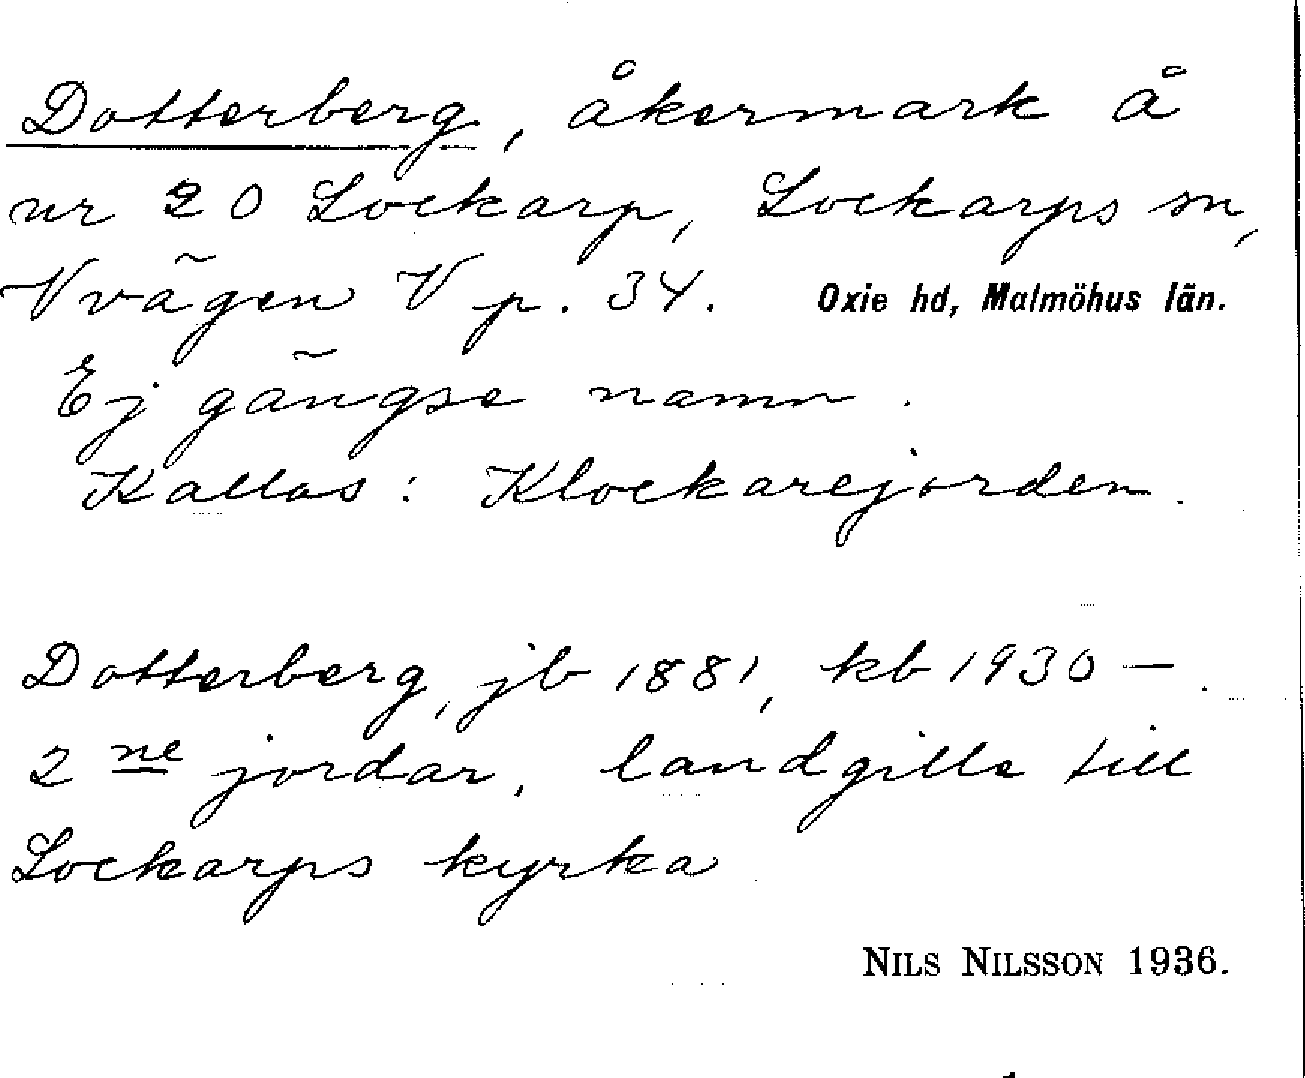 Dotterberg, åkermark å
nr 20 Lockarp, Lockarps sn,
V vägen V p. 34. Oxie hd, Malmöhus län.
Ej gängse namn.
Kallas: Klockarejorden.
Dotterberg, jb 1881, kb 1930 —.
2 ne jordar, landgille till
Lockarps kyrka
NILS NILSSON 1936.